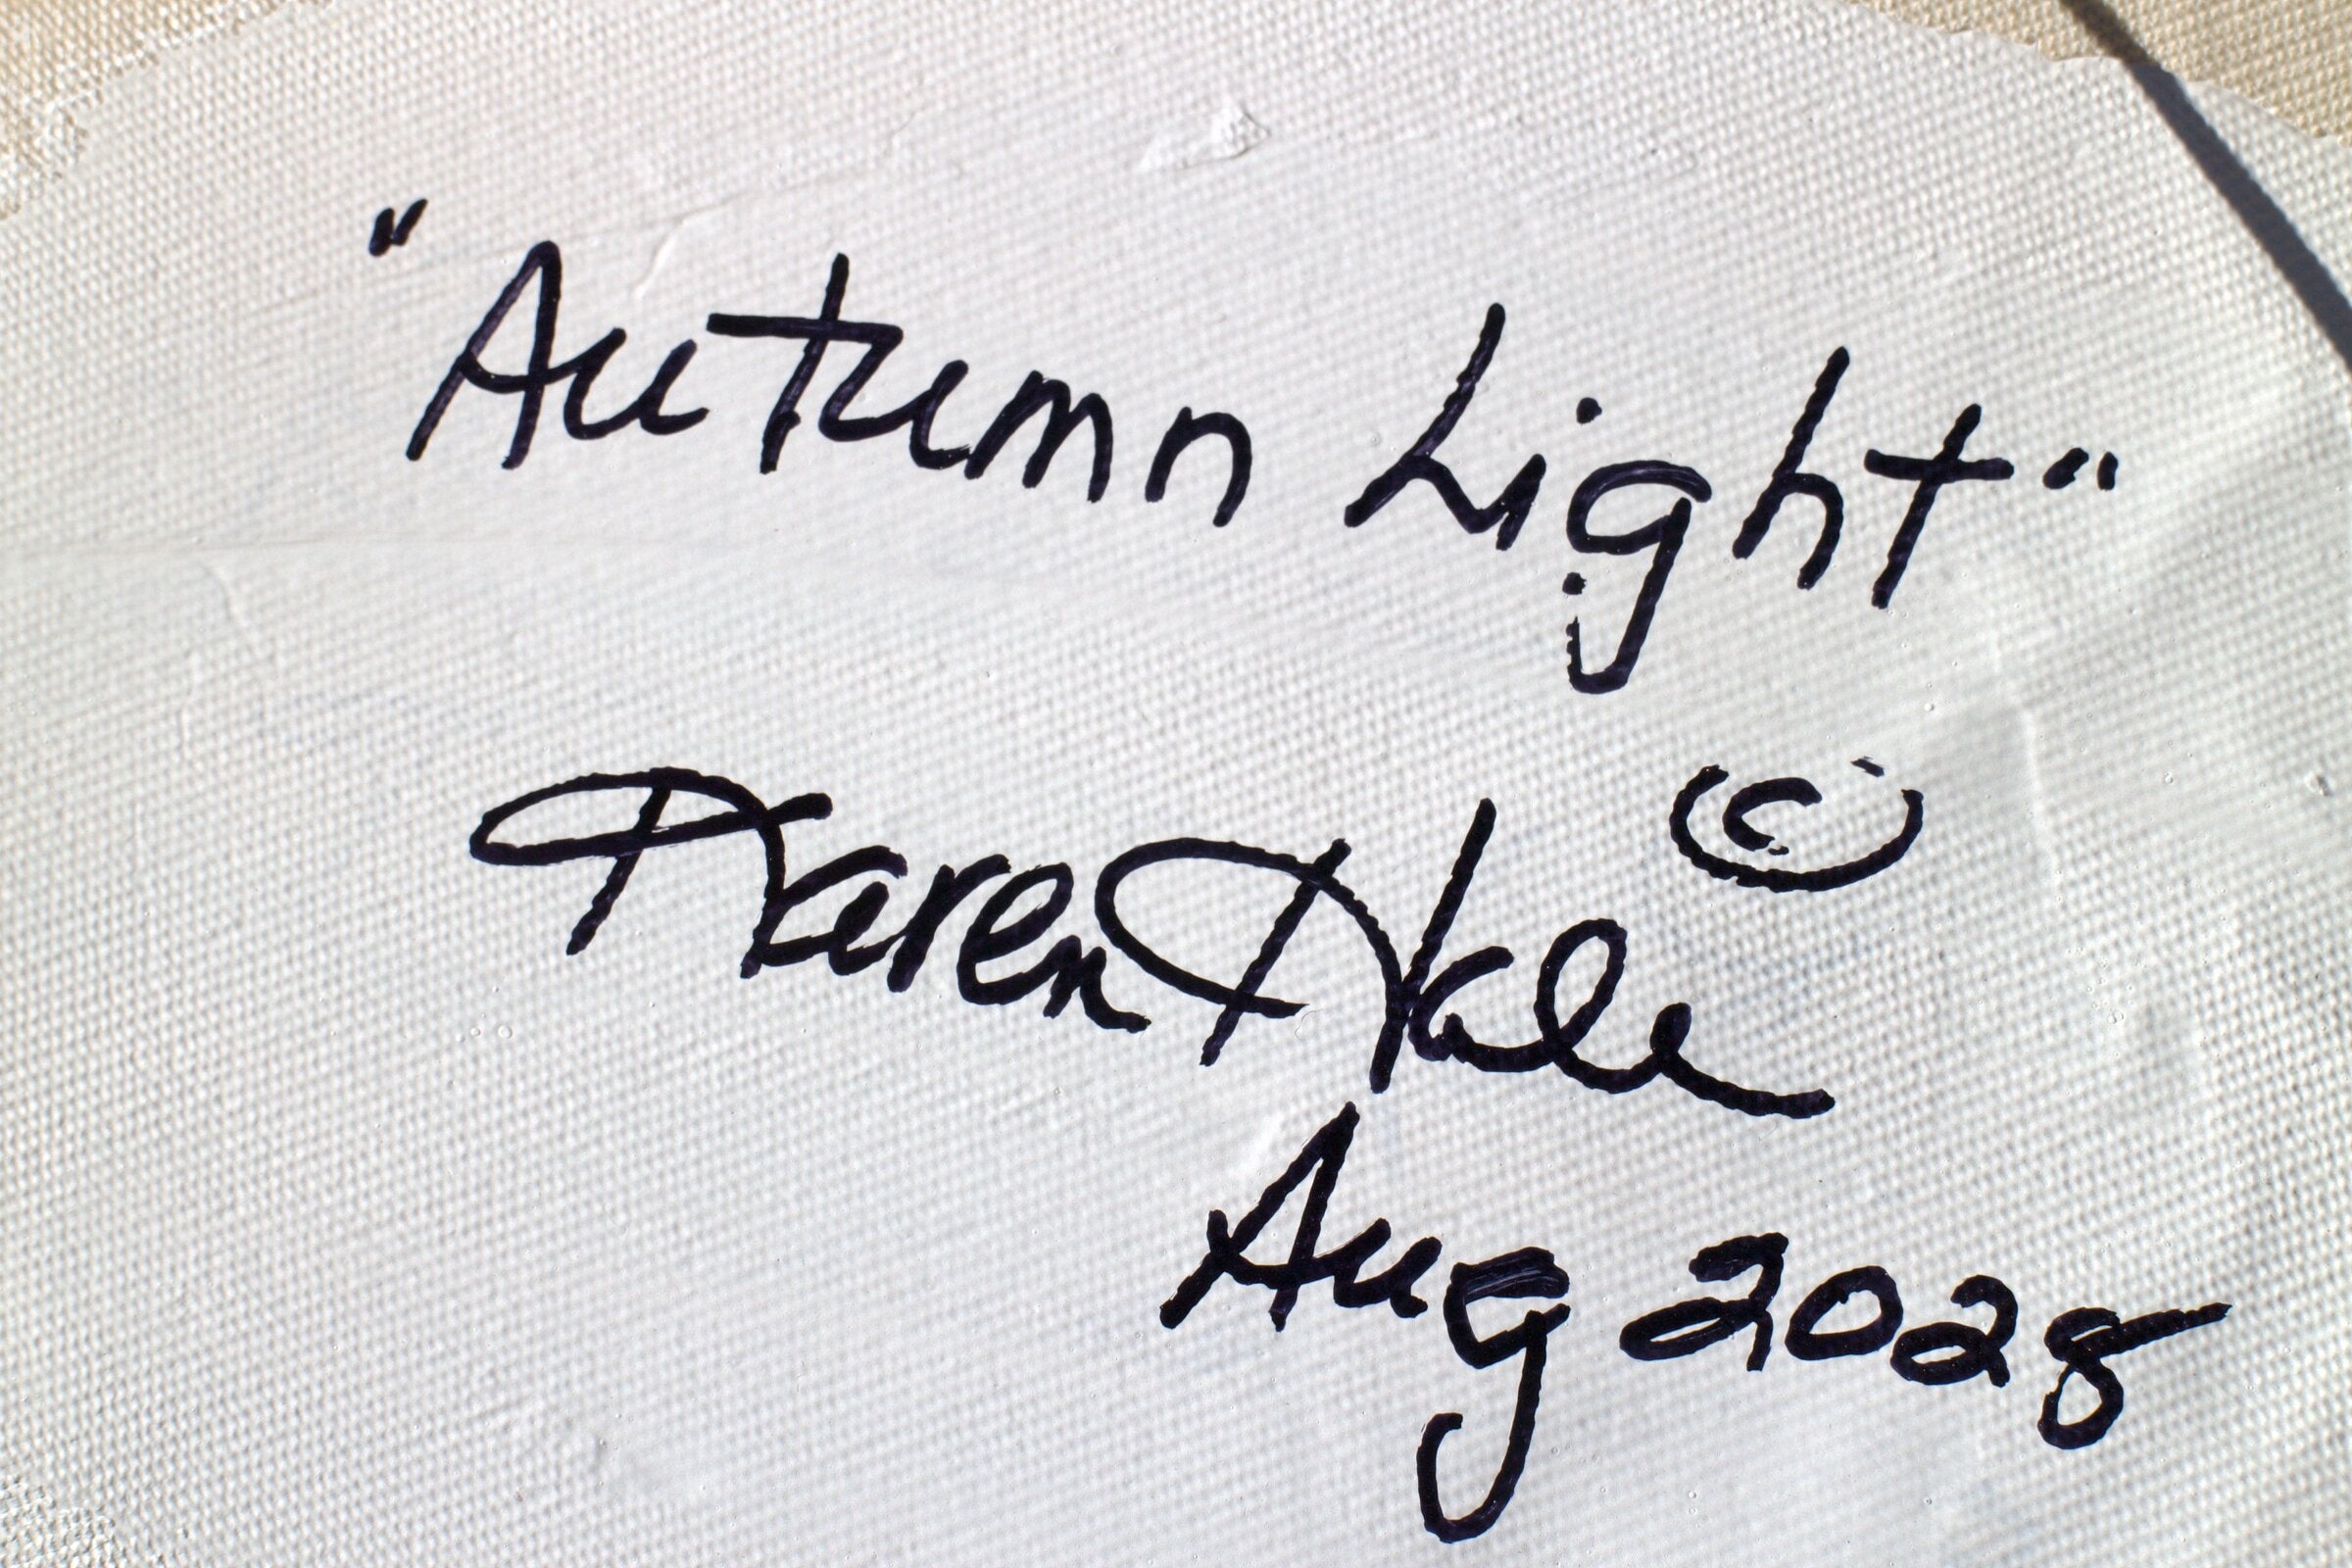 "Autumn Light"
Karen Hale ©
Aug 2028